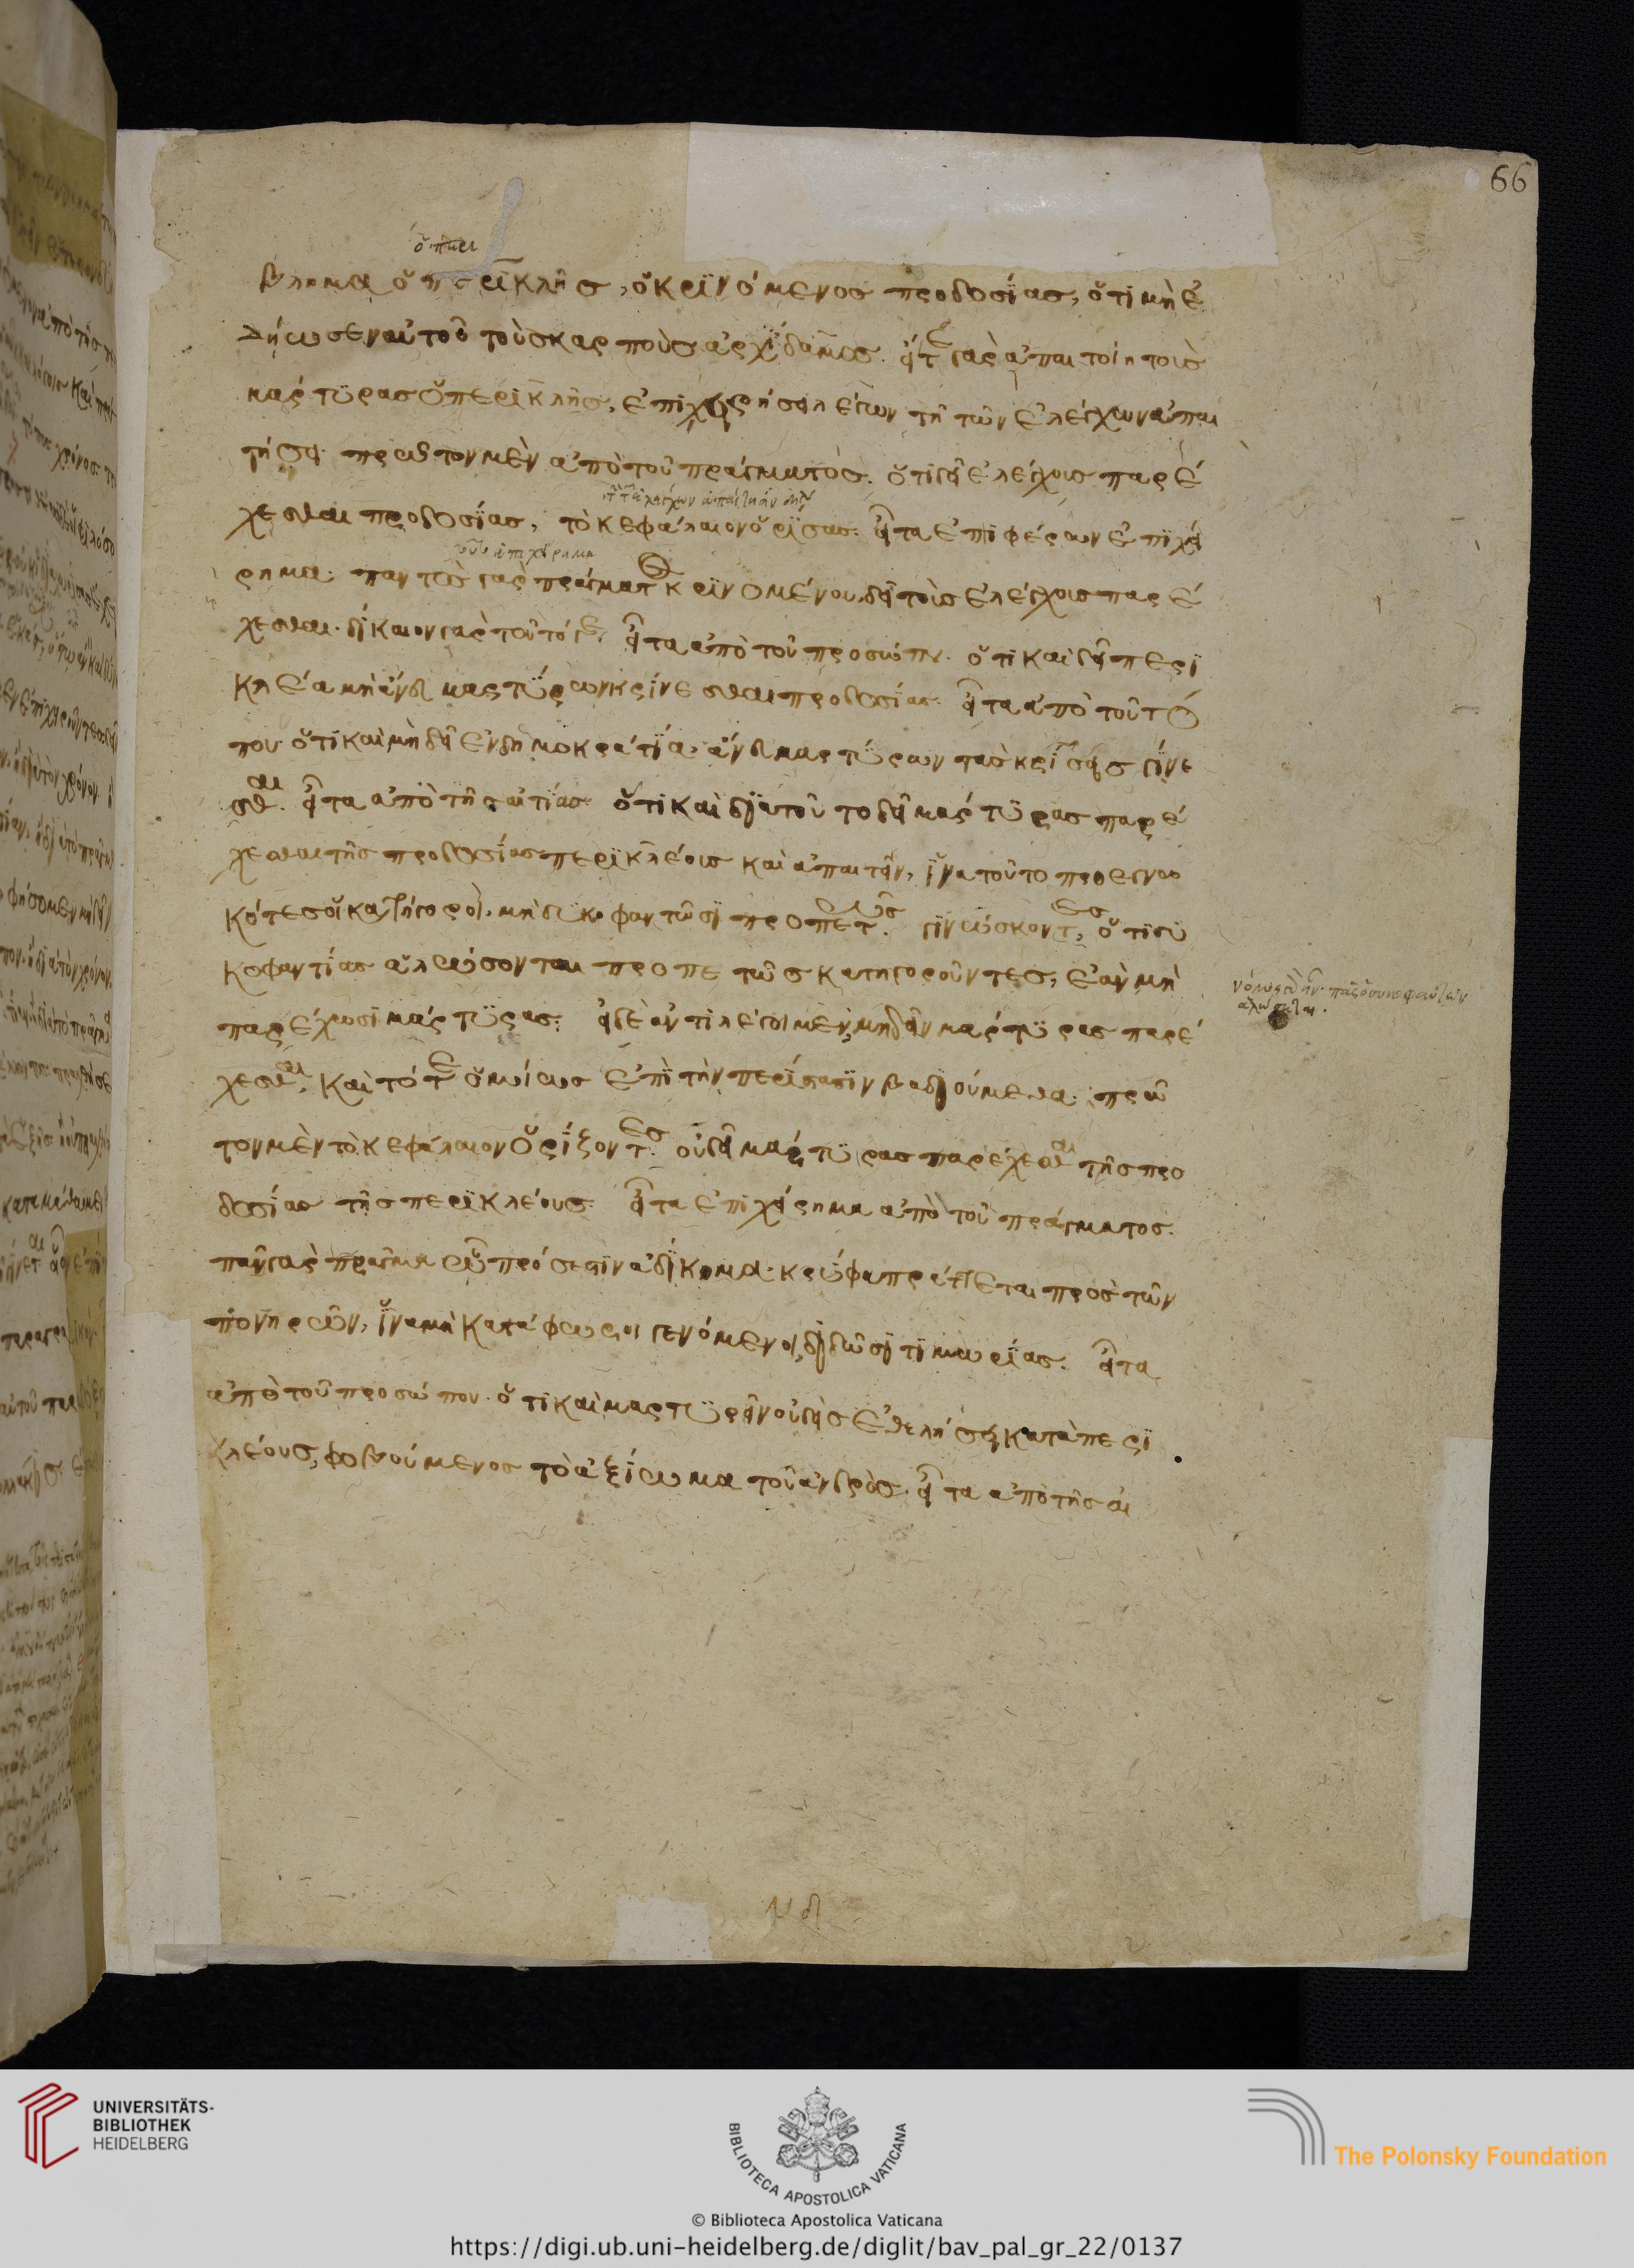 66
βλημα ὁ περικλῆς, ὁ κρινόμενος προδοσίας, ὅτι μὴ ἐ
δήωσεν αὐτοῦ τοὺς καρποὺς ἀρχίδαμος. εἴτε γὰρ ἀπαιτοίη τοὺς
μάρτυρας ὁ περικλῆς, ἐπιχειρήσει λέγων τῇ τῶν ἐλέγχων ἀπαι
τήσει πρῶτον μὲν ἀπὸ τοῦ πράγματος. ὅτι δεῖ ἐλέγχους παρέ
χεσθαι προδοσίας, τὸ κεφάλαιον ὁρίσας. εἶτα ἐπιφέρων ἐπιχεί
ρημα. παντὸς γὰρ πράγματος κρινομένου, δεῖ τοὺς ἐλέγχους παρέ
χεσθαι. δίκαιον γὰρ τοῦτό γε. εἶτα ἀπὸ τοῦ προσώπου. ὅτι καὶ δεῖ περι
κλέα μὴ ἄνευ μαρτύρων κρίνεσθαι προδοσίας. εἶτα ἀπὸ τοῦ τό
που ὅτι καὶ μὴ δεῖ ἐν δημοκρατίᾳ ἄνευ μαρτύρων τὰς κρίσεις γίνε
σθαι. εἶτα ἀπὸ τῆς αἰτίας ὅτι καὶ δι' αὐτοῦτο δεῖ μάρτυρας παρέ
χεσθαι τῆς προδοσίας περικλέους καὶ ἀπαιτεῖν, ἵνα τοῦτο προεγνω
κότες οἱ κατήγοροι, μὴ συκοφαντῶσι προπετῶς. γινώσκοντες, ὅτι συ
κοφαντίας ἁλώσονται προπετῶς κατηγοροῦντες, ἐὰν μὴ
παρέχωσι μάρτυρας. εἰ δὲ ἀντιλέγοιμεν, μὴ δεῖν μάρτυρας παρέ
χεσθαι, καὶ τότε ὁμοίως ἐπὶ τὴν περίστασιν βαδιούμεθα. πρῶ
τον μὲν τὸ κεφάλαιον ὁρίζοντες. οὐ δεῖ μάρτυρας παρέχεσθαι τῆς προ
δοσίας τῆς περικλέους. εἶτα ἐπιχείρημα ἀπὸ τοῦ πράγματος.
πᾶν γὰρ πρᾶγμα ᾧ πρόσεστιν ἀδίκημα κρύφα πράττεται πρὸς τῶν
πονηρῶν, ἵνα μὴ κατάφωροι γενόμενοι, διδῶσι τιμωρίας. εἶτα
ἀπὸ τοῦ προσώπου. ὅτι καὶ μαρτυρεῖν οὐδεὶς ἐθελήσει κατὰ περι
κλέους, φοβούμενος τὸ ἀξίωμα τοῦ ἀνδρός. εἶτα ἀπὸ τῆς αἰ
UNIVERSITÄTS-
BIBLIOTHEK
HEIDELBERG
BIBLIOTECA APOSTOLICA VATICANA
The Polonsky Foundation
© Biblioteca Apostolica Vaticana
https://digi.ub.uni-heidelberg.de/diglit/bav_pal_gr_22/0137